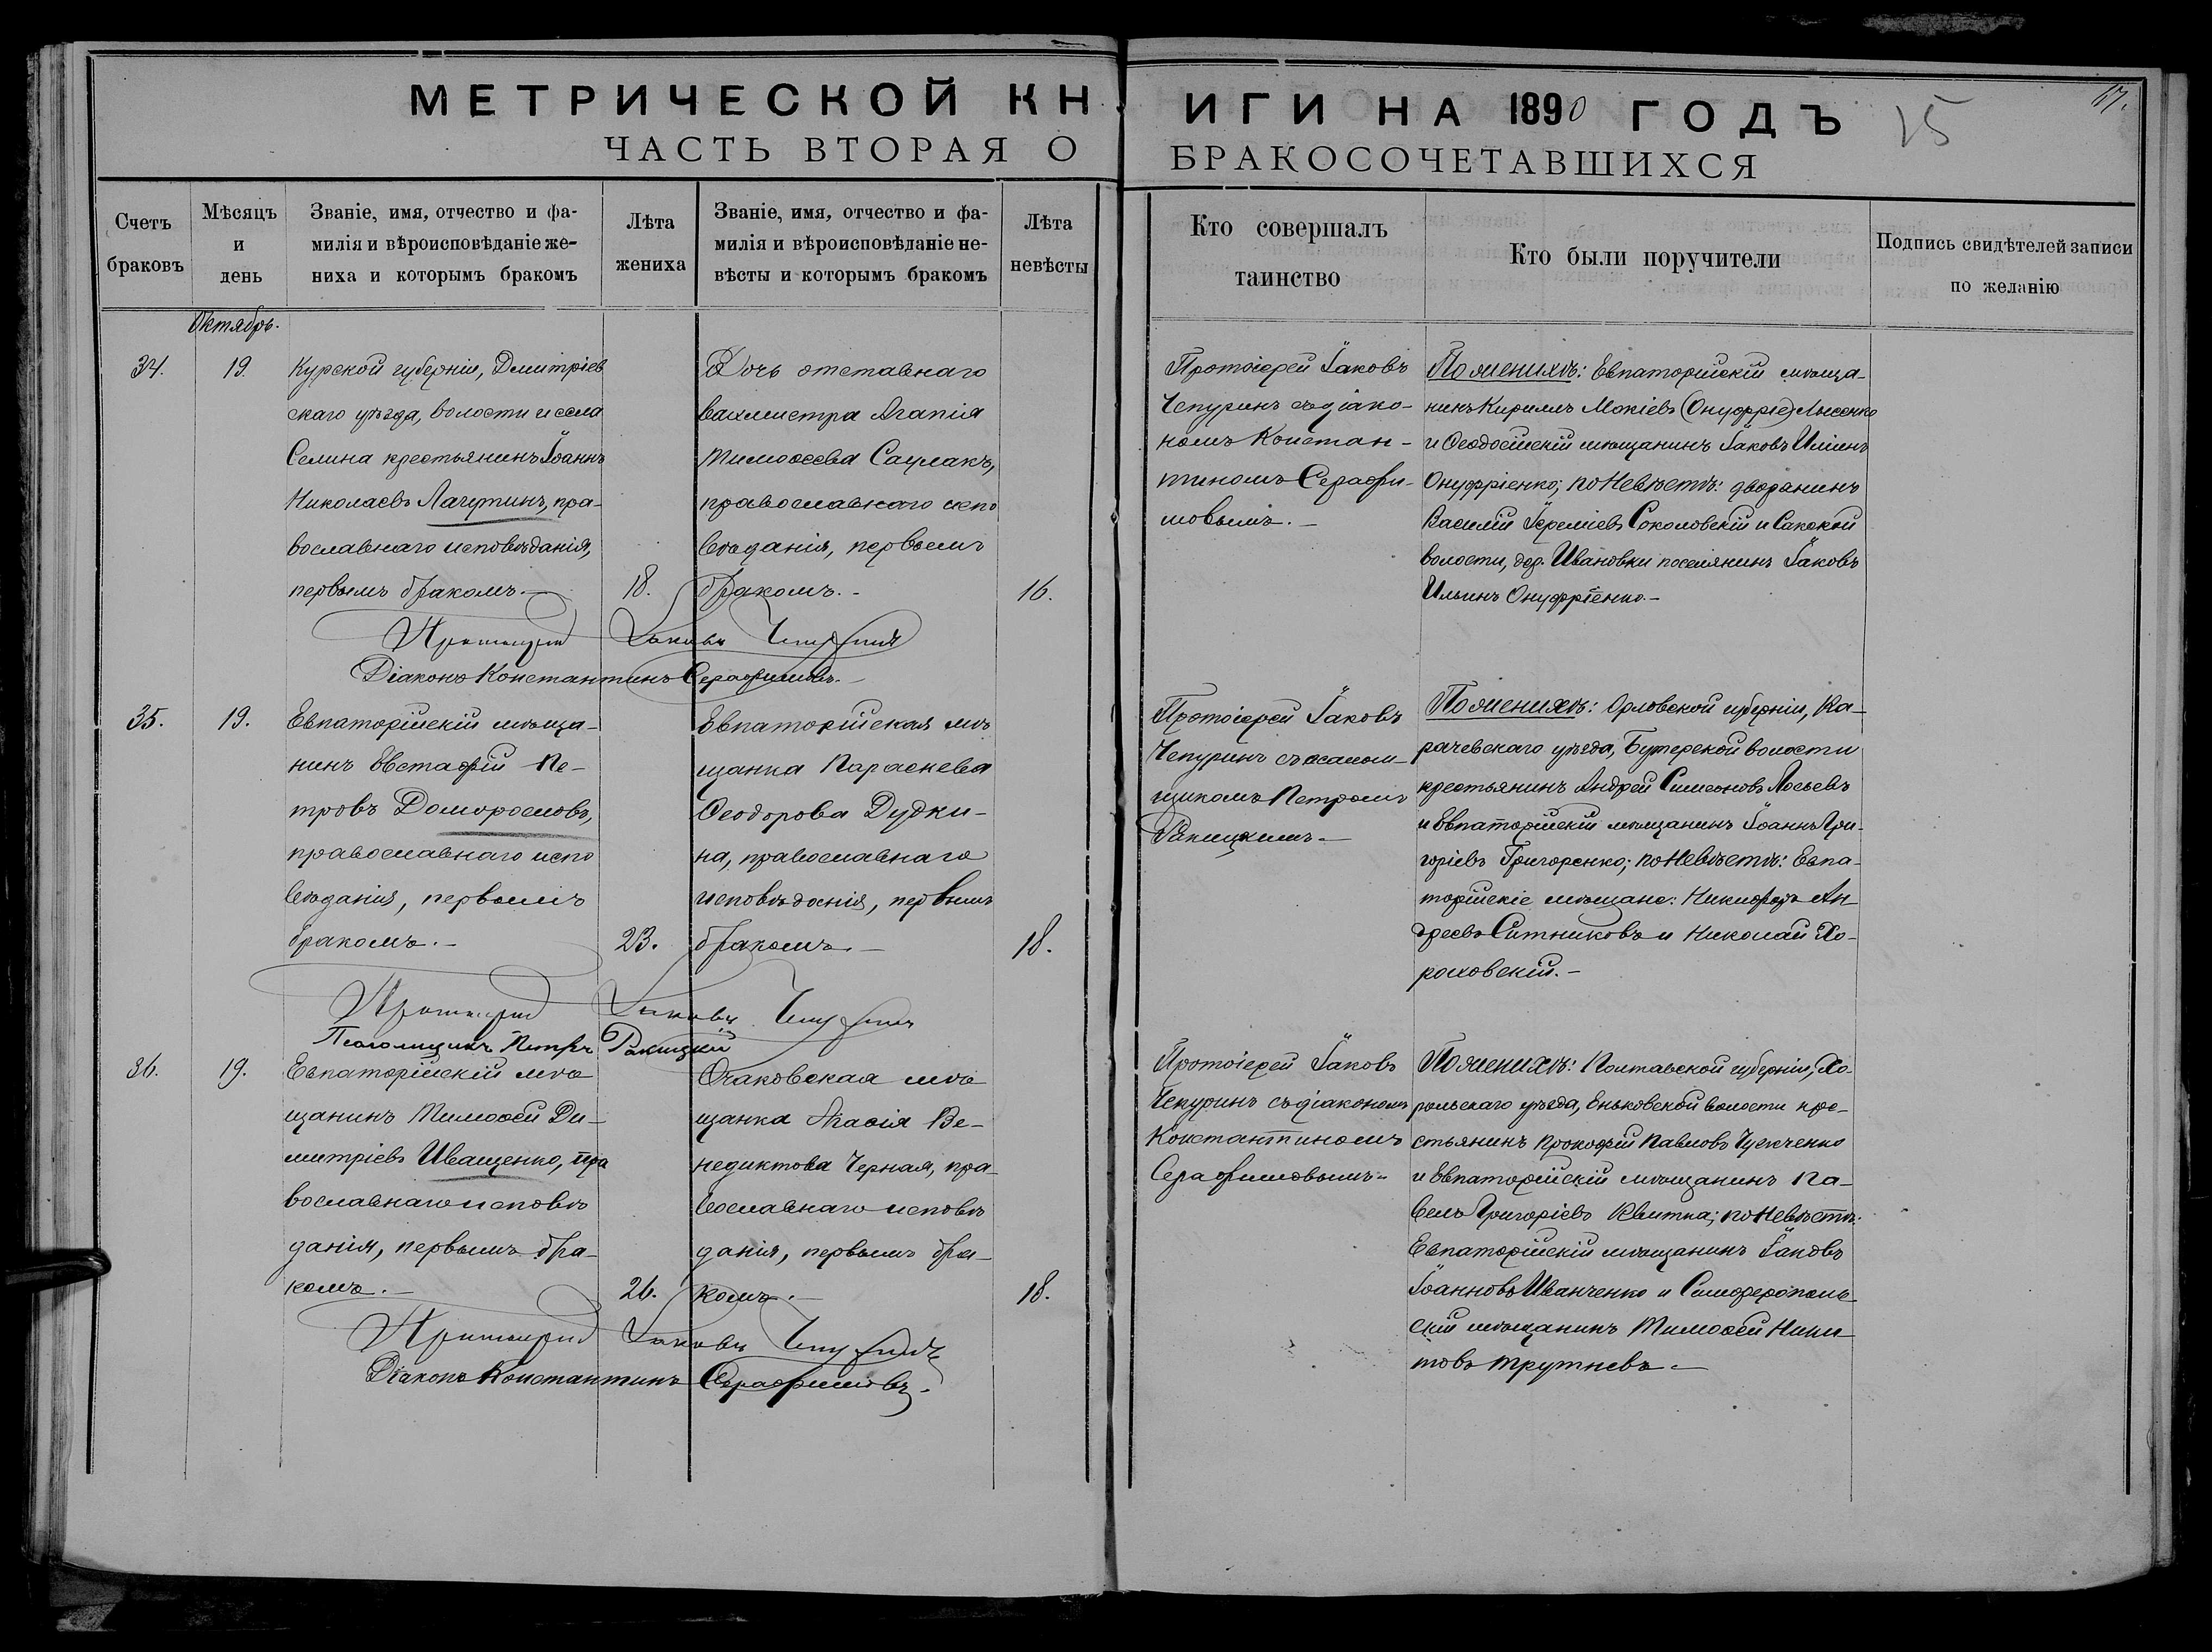 МЕТРИЧЕСКОЙ КНИГИ НА 1890 ГОДЪ
15
17.
ЧАСТЬ ВТОРАЯ О БРАКОСОЧЕТАВШИХСЯ
Счетъ
браковъ
Мѣсяцъ
и
день
Званіе, имя, отчество и фа-
милія и вѣроисповѣданіе же-
ниха и которымъ бракомъ
Лѣта
жениха
Званіе, имя, отчество и фа-
милія и вѣроисповѣданіе не-
вѣсты и которымъ бракомъ
Лѣта
невѣсты
Кто совершалъ
таинство
Кто были поручители
Подпись свидѣтелей записи
по желанію
Октябрь.
34.
19.
Курской губерніи, Дмитріев
скаго уѣзда, волости и села
Селина крестьянинъ Іоаннъ
Николаевъ Лагутинъ, пра-
вославнаго исповѣданія,
первымъ бракомъ.-
18.
Дочь отставнаго
вахмистра Агапія
Тимоѳеева Саулакъ,
православнаго испо
вѣданія, первымъ
бракомъ.-
16.
Протоіерей Іаковъ
Чепуринъ съ діако-
номъ Констан-
тиномъ Серафи-
мовымъ.-
По женихѣ: Евпаторійскій мѣща-
нинъ Кириллъ Мокіевъ (Онуфріе) Лысенко
и Ѳеодосійскій мѣщанинъ Іаковъ Ильинъ
Онуфріенко; по невѣстѣ: дворянинъ
Василій Іереміевъ Соколовскій и Сакской
волости, дер. Ивановки поселянинъ Іаковъ
Ильинъ Онуфріенко.-
Протоіерей Іаковъ Чепуринъ
Діаконъ Константинъ Серафимовъ.-
35.
19.
Евпаторійскій мѣща-
нинъ Евстафій Пе-
тровъ Доморословъ,
православнаго испо
вѣданія, первымъ
бракомъ.-
23.
Евпаторійская мѣ
щанка Параскева
Ѳеодорова Дудки-
на, православнаго
исповѣданія, первымъ
бракомъ.-
18.
Протоіерей Іаковъ
Чепуринъ съ псалом-
щикомъ Петромъ
Ракицкимъ.-
По женихѣ: Орловской губерніи, Ка-
рачевскаго уѣзда, Бутерской волости
крестьянинъ Андрей Симеоновъ Лосевъ
и Евпаторійскій мѣщанинъ Іоаннъ Гри-
горіевъ Григоренко; по невѣстѣ: Евпа-
торійскіе мѣщане: Никифоръ Ан
дреевъ Ситниковъ и Николай Хо-
роховскій.-
Протоіерей Іаковъ Чепуринъ
Псаломщикъ Петръ Ракицкій
36.
19.
Евпаторійскій мѣ
щанинъ Тимоѳей Ди-
митріевъ Иващенко, пра
вославнаго исповѣ
данія, первымъ бра-
комъ.-
26.
Очаковская мѣ
щанка Агаѳія Ве-
недиктова Черная, пра-
вославнаго исповѣ
данія, первымъ бра-
комъ.-
18.
Протоіерей Іаковъ
Чепуринъ съ діакономъ
Константиномъ
Серафимовымъ.-
По женихѣ: Полтавской губерніи, Хо-
рольскаго уѣзда, Еньковской волости кре-
стьянинъ Прокофій Павловъ
и Евпаторійскій мѣщанинъ Па-
велъ Григоріевъ Квитка; по невѣстѣ:
Евпаторійскій мѣщанинъ Іаковъ
Іоанновъ Иванченко и Симферополь
скій мѣщанинъ Тимоѳей Ники
товъ Трутневъ.-
Протоіерей Іаковъ Чепуринъ
Діаконъ Константинъ Серафимовъ.